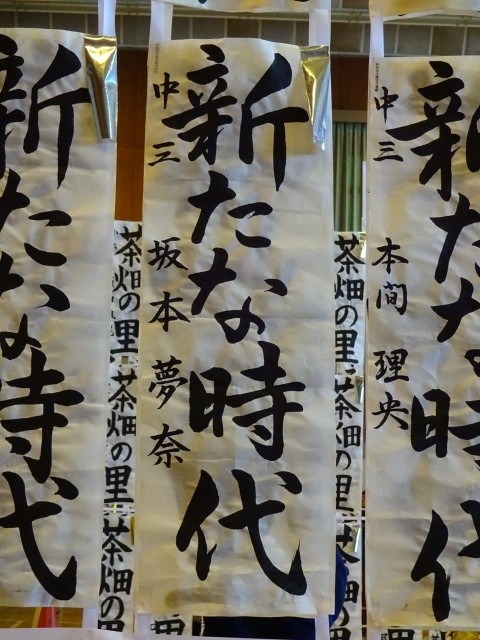 新たな時代
中三 本間 理央
茶畑の里
茶畑の里
茶
新たな時代
中三 坂本 夢奈
茶畑の里
茶畑の里
茶畑の里
新たな時代